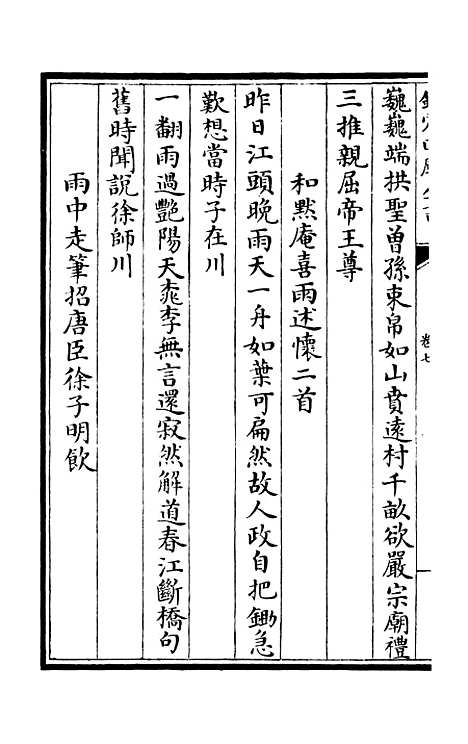 卷七
巍巍端拱聖曽孫束帛如山賁逺村千畝欲嚴宗廟禮
三推親屈帝王尊
和黙庵喜雨述懷二首
昨日江頭晚雨天一舟如葉可扁然故人政自把鋤急
歎想當時子在川
一翻雨過艷陽天桃李無言還寂然解道春江斷橋句
舊時聞説徐師川
雨中走筆招唐臣徐子明飲